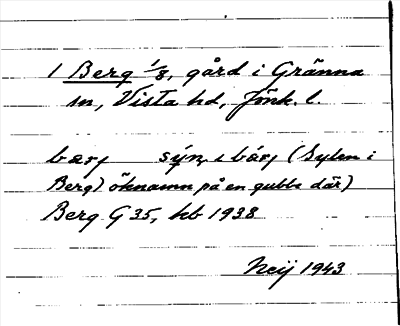 1 Berg 1/8, gård i Gränna
sn, Vista hd, Jönk. l.
bærj sýn i bærj (Sylen i
Berg) öknamn på en gubbe där)
Berg G 35, hb 1938
Neij 1943